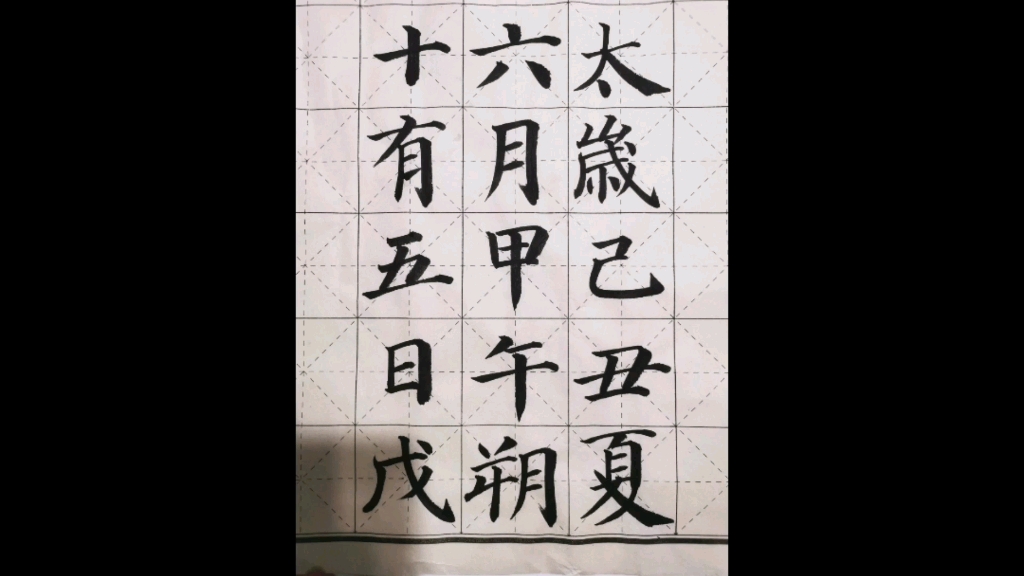 太歲己丑夏
六月甲午朔
十有五日戊